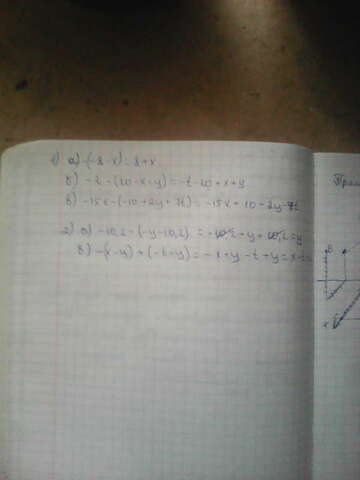 1) а) -(-8-x) = 8+x
б) -t-(20-x-y) = -t-20+x+y
в) -15x-(-10+2y+7t) = -15x+10-2y-7t
2) а) -10,2-(-y-10,2) = -10,2-y+10,2=y
б) -(x-y)+(-t+y) = -x+y-t+y=x-t